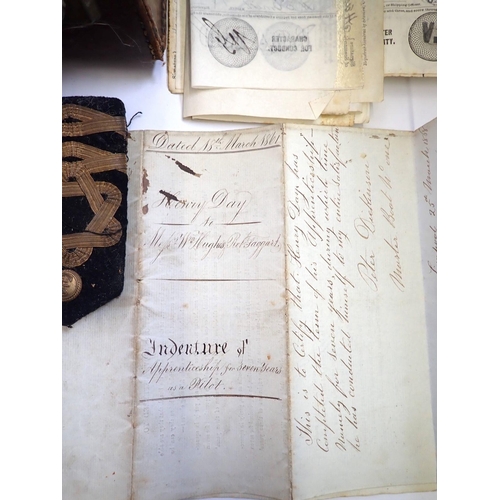 FOR CONDUCT.
CHARACTER
V.
Dated 15th March 1861
Henry Day
to
Mess Wm Hughes Robt Taggart
Indenture of
Apprenticeship for Seven Years
as a Pilot
This is to Certify that Henry Day has
Completed the Term of his Apprenticeship
Namely for seven years, during which time
he has conducted himself to my entire satisfaction
Peter Dickinson
Master Boat No one
25 March